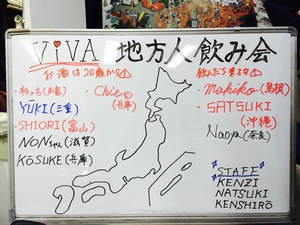 ViVA 地方人飲み会
お酒は20歳から⚠
飲んだら乗るな⚠
YÜKi (三重)
SHiORi (富山)
NONちゃん (滋賀)
KōSUKE (兵庫)
Chie (兵庫)
Makiko (島根)
SATSUKi (沖縄)
Naoya (奈良)
STAFF
KENZi
NATSUKi
KENSHiRō